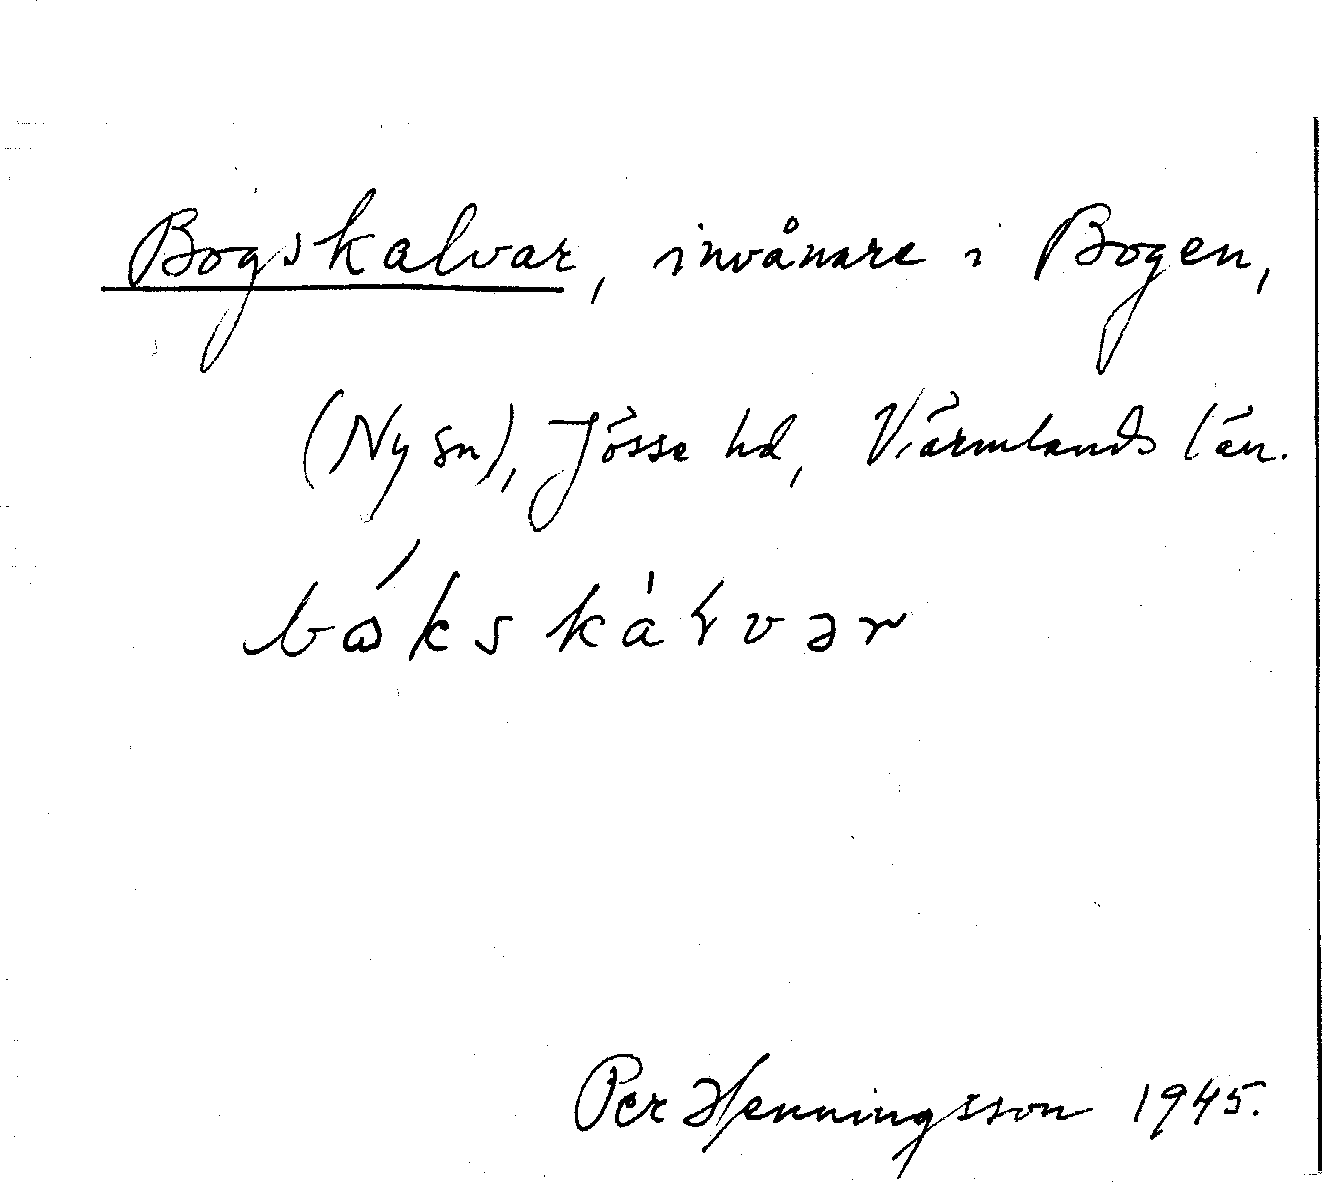 Bogskalvar, invånare i Bogen,
(Ny sn), Jösse hd, Värmlands län.
Per Henningsson 1945.